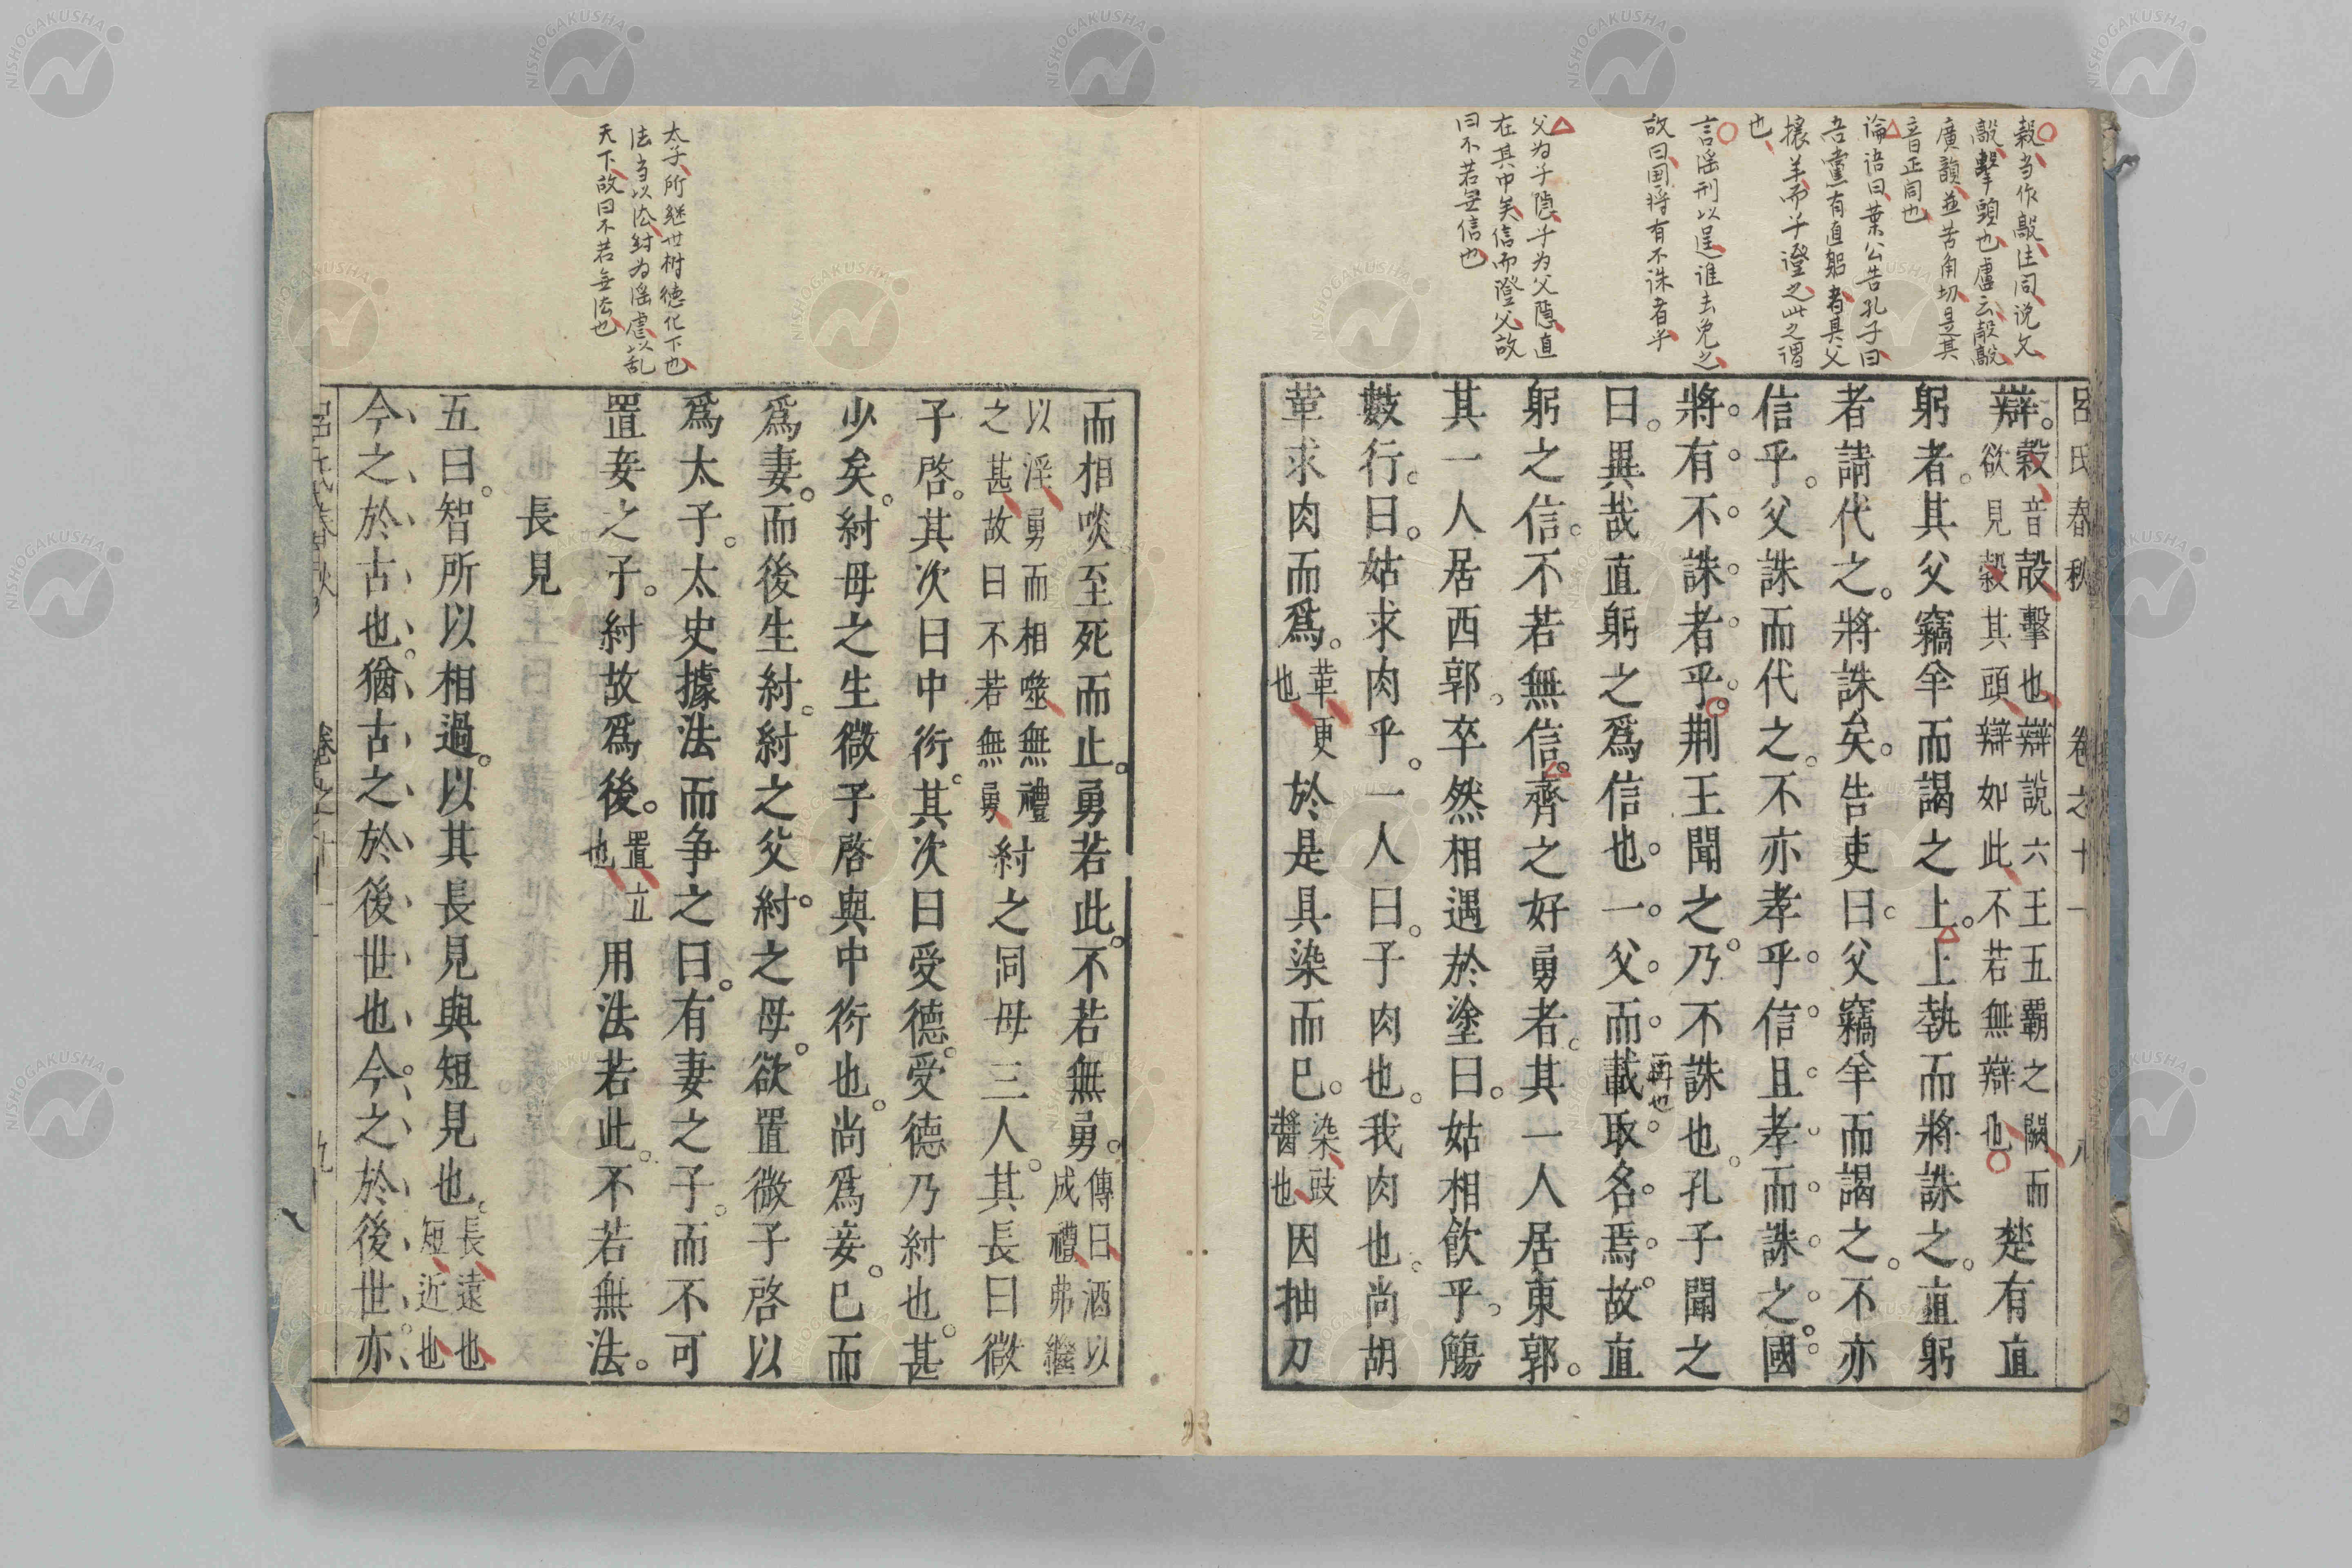 呂氏春秋 卷之十一 八
辯。穀音㱿擊也辯說六王五覇之闕而
欲見㱿其頭辯如此不若無辯也
楚有直
躬者。其父竊羊而謁之上。上執而將誅之。直躬
者請代之。將誅矣。告吏曰。父竊羊而謁之。不亦
信乎。父誅而代之。不亦孝乎。信且孝而誅之。國
將有不誅者乎。荆王聞之。乃不誅也。孔子聞之
曰。異哉直躬之爲信也。一父而載取名焉。故直
再也
躬之信。不若無信。齊之好勇者。其一人居東郭。
其一人居西郭。卒然相遇於塗曰。姑相飲乎。觴
數行。曰。姑求肉乎。一人曰。子肉也。我肉也。尚胡
革求肉而爲。
革更
也
於是具染而已。
染豉
醬也
因抽刀
穀当作㱿注同说文
㱿擊頭也盧云㱿㱿
廣韻並苦角切是其
音正同也
論语曰葉公告孔子曰
吾黨有直躬者其父
攘羊而子證之此之谓
也
言淫刑以逞谁去免之
故曰国将有不诛者乎
父为子隐子为父隐直
在其中矣信而證父故
曰不若無信也
而相啖至死而止。勇若此。不若無勇。
傳曰酒以
成禮弗繼
以淫勇而相噬無禮
之甚故曰不若無勇
紂之同母三人。其長曰微
子啓。其次曰中衍。其次曰受德。受德乃紂也。甚
少矣。紂母之生微子啓與中衍也。尚爲妾。已而
爲妻。而後生紂。紂之父紂。之母。欲置微子啓以
爲太子。太史據法而争之曰。有妻之子。而不可
置妾之子。紂故爲後。
置立
也
用法若此。不若無法。
長見
五曰。智所以相過。以其長見與短見也。
長遠也
短近也
今之於古也。猶古之於後世也。今之於後世。亦
太子所继世树德化下也
法当以法紂为淫虐以乱
天下故曰不若無法也